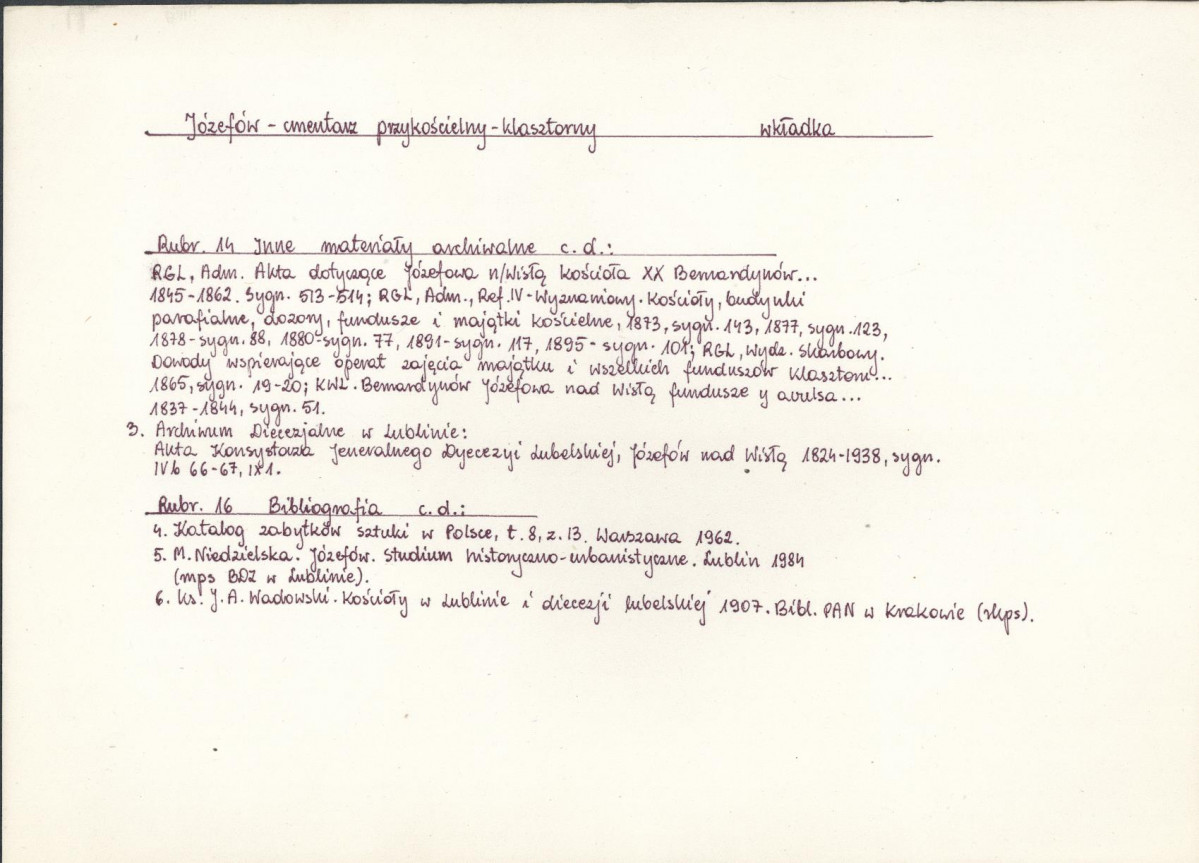 Józefów - cmentarz przykościelny-klasztorny wkładka
Rubr. 14 Inne materiały archiwalne c.d.:
RGL, Adm. Akta dotyczące Józefowa n/Wisłą kościoła XX Bernardynów...
1845-1862. Sygn. 513-514; RGL, Adm., Ref. IV - Wyznaniowy. Kościoły, budynki
parafialne, dozory, fundusze i majątki kościelne, 1873, sygn. 143, 1877, sygn. 123,
1878 - sygn. 88, 1880 - sygn. 77, 1891 - sygn. 117, 1895 - sygn. 101; RGL, Wydz. Skarbowy.
Dowody wspierające operat zajęcia majątku i wszelkich funduszów klasztorn...
1865, sygn. 19-20; KWL. Bernardynów Józefowa nad Wisłą fundusze y avulsa...
1837-1844, sygn. 51.
3. Archiwum Diecezjalne w Lublinie:
Akta Konsystorza Jeneralnego Dyecezyi Lubelskiej, Józefów nad Wisłą 1824-1938, sygn.
IVb 66-67, IX1.
Rubr. 16 Bibliografia c.d.:
4. Katalog zabytków sztuki w Polsce, t. 8, z. 13. Warszawa 1962.
5. M. Niedzielska. Józefów. Studium historyczno-urbanistyczne. Lublin 1984
(mps BDZ w Lublinie).
6. Ks. J. A. Wadowski. Kościoły w Lublinie i diecezji lubelskiej 1907. Bibl. PAN w Krakowie (rkps).